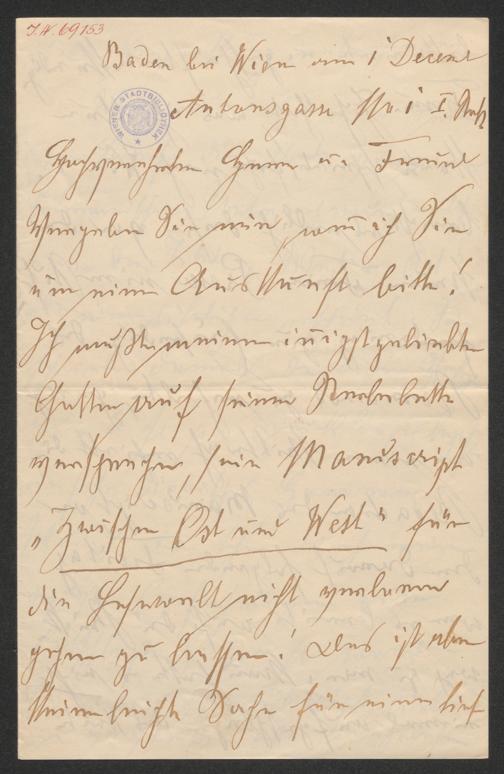 J.N. 69153
Baden bei Wien am 1 Decemb
WIENER STADTBIBLIOTHEK
Antonsgasse No 1 I. Stock
Hochverehrter Herr u. Freund
Vergeben Sie mir, wenn ich Sie
um eine Auskunft bitte!
Ich mußte meinem innigst geliebten
Gatten auf seinem Sterbebette
versprechen, sein Manuscript
„Zwischen Ost und West“ für
die Lesewelt nicht verloren
gehen zu lassen! Das ist aber
keine leichte Sache für eine tief